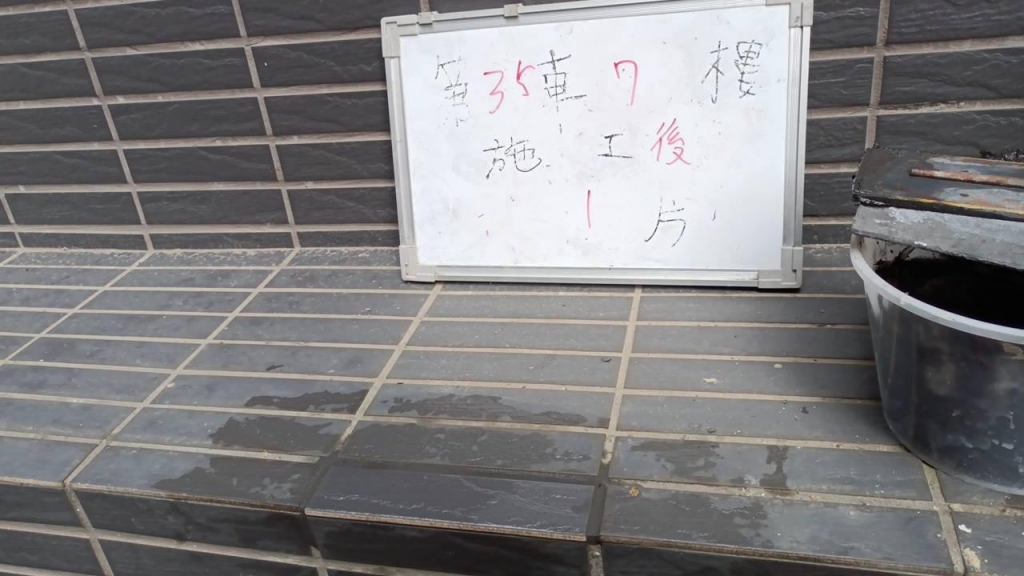 第35車7樓
施工後
1片